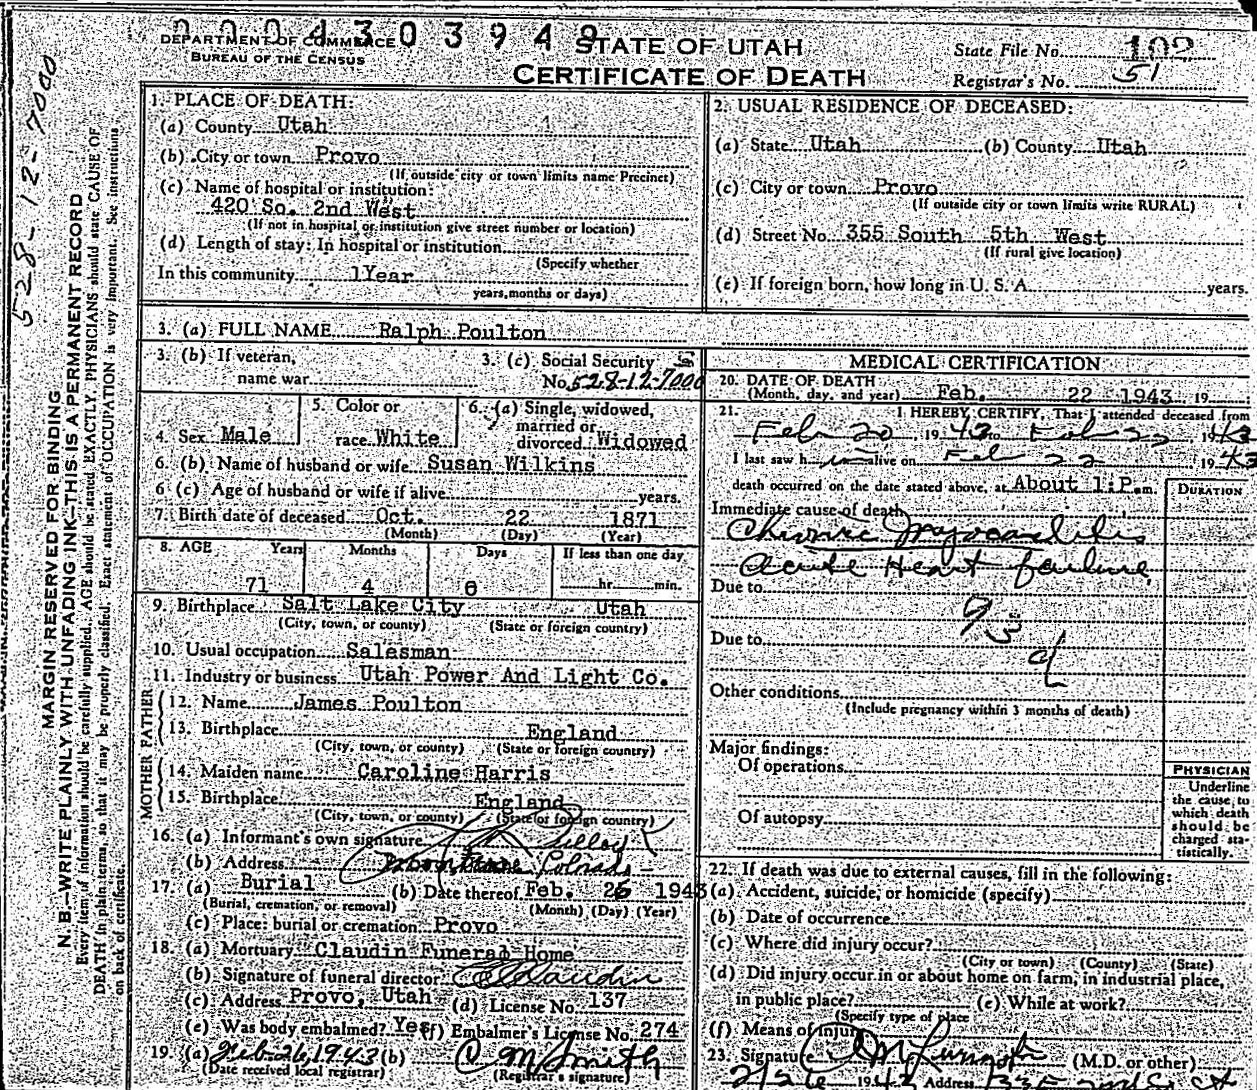 2004303949
DEPARTMENT OF COMMERCE
BUREAU OF THE CENSUS
STATE OF UTAH
CERTIFICATE OF DEATH
State File No. 102
Registrar's No. 51
528-12-7000
MARGIN RESERVED FOR BINDING
N. B.—WRITE PLAINLY WITH UNFADING INK—THIS IS A PERMANENT RECORD
Every item of information should be carefully supplied. AGE should be stated EXACTLY. PHYSICIANS should state CAUSE OF
DEATH in plain terms, so that it may be properly classified. Exact statement of OCCUPATION is very important. See instructions
on back of certificate.
1. PLACE OF DEATH:
(a) County Utah
(b) City or town Provo
(If outside city or town limits name Precinct)
(c) Name of hospital or institution:
420 So. 2nd West
(If not in hospital or institution give street number or location)
(d) Length of stay: In hospital or institution
(Specify whether
In this community 1 Year
years, months or days)
2. USUAL RESIDENCE OF DECEASED:
(a) State Utah (b) County Utah
(c) City or town Provo
(If outside city or town limits write RURAL)
(d) Street No. 355 South 5th West
(If rural give location)
(e) If foreign born, how long in U. S. A. years.
3. (a) FULL NAME Ralph Poulton
3. (b) If veteran,
name war
3. (c) Social Security
No. 528-12-7000
4. Sex Male
5. Color or
race White
6. (a) Single, widowed,
married or
divorced Widowed
6. (b) Name of husband or wife Susan Wilkins
6 (c) Age of husband or wife if alive years.
7. Birth date of deceased Oct. 22 1871
(Month) (Day) (Year)
8. AGE Years Months Days If less than one day
71 4 0 hr. min.
9. Birthplace Salt Lake City Utah
(City, town, or county) (State or foreign country)
10. Usual occupation Salesman
11. Industry or business Utah Power And Light Co.
FATHER
12. Name James Poulton
13. Birthplace England
(City, town, or county) (State or foreign country)
MOTHER
14. Maiden name Caroline Harris
15. Birthplace England
(City, town, or county) (State or foreign country)
16. (a) Informant's own signature
(b) Address Colorado
17. (a) Burial (b) Date thereof Feb. 26 1943
(Burial, cremation, or removal) (Month) (Day) (Year)
(c) Place: burial or cremation Provo
18. (a) Mortuary Claudin Funeral Home
(b) Signature of funeral director Claudin
(c) Address Provo, Utah (d) License No. 137
(e) Was body embalmed? Yes (f) Embalmer's License No. 274
19. (a) Feb. 26, 1943 (b) C M Smith
(Date received local registrar) (Registrar's signature)
MEDICAL CERTIFICATION
20. DATE OF DEATH
(Month, day, and year) Feb. 22 1943 19
21. I HEREBY CERTIFY, That I attended deceased from
Feb 20, 1943 to Feb 22, 1943
I last saw him alive on Feb 22, 1943
death occurred on the date stated above, at About 1:P.m.
DURATION
Immediate cause of death
Chronic Myocarditis
Acute Heart failure
Due to
93
d
Due to
Other conditions
(Include pregnancy within 3 months of death)
Major findings:
Of operations
Of autopsy
PHYSICIAN
Underline
the cause to
which death
should be
charged sta-
tistically.
22. If death was due to external causes, fill in the following:
(a) Accident, suicide, or homicide (specify)
(b) Date of occurrence
(c) Where did injury occur?
(City or town) (County) (State)
(d) Did injury occur in or about home on farm, in industrial place,
in public place? (e) While at work?
(Specify type of place
(f) Means of injury
23. Signature (M.D. or other)
2/26 1943 Address